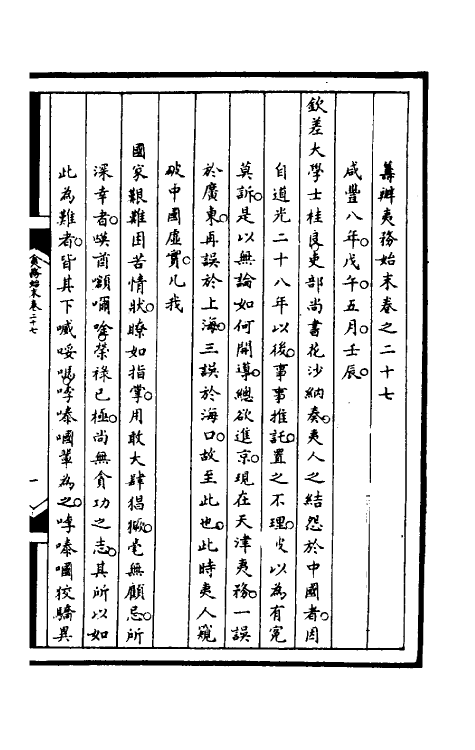 籌辦夷務始末卷之二十七
咸豐八年戊午五月壬辰
欽差大學士桂良吏部尚書花沙納奏夷人之結怨於中國者因
自道光二十八年以後事事推託置之不理以為有冤
莫訴是以無論如何開導總欲進京現在天津夷務一誤
於廣東再誤於上海三誤於海口故至此也此時夷人窺
破中國虛實凡我
國家艱難困苦情狀瞭如指掌用敢大肆猖獗毫無顧忌所
深幸者㗆酋額嚼唫榮祿已極尚無貪功之志其所以如
此為難者皆其下嘁哾嗎㖓嗪嘓輩為之㖓嗪嘓狡驕異
夷務始末卷二十七
一